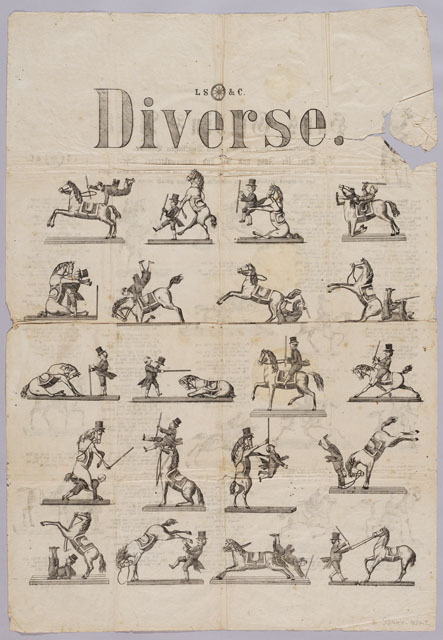 LS & C.
Diverse.